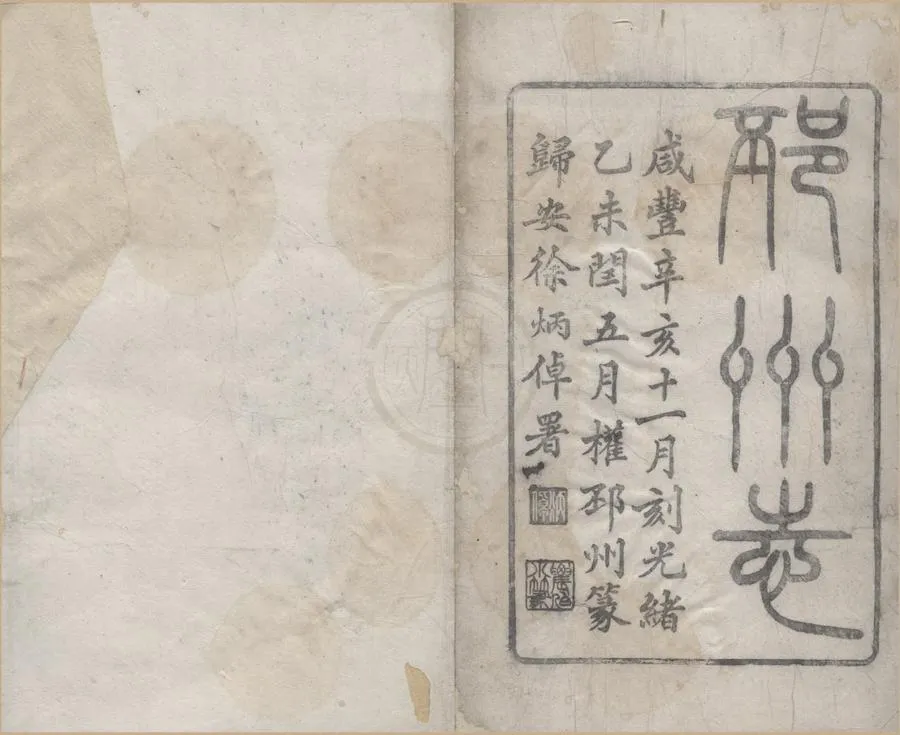 邳州志
咸豐辛亥十一月刻光緒
乙未閏五月權邳州篆
歸安徐炳倬署